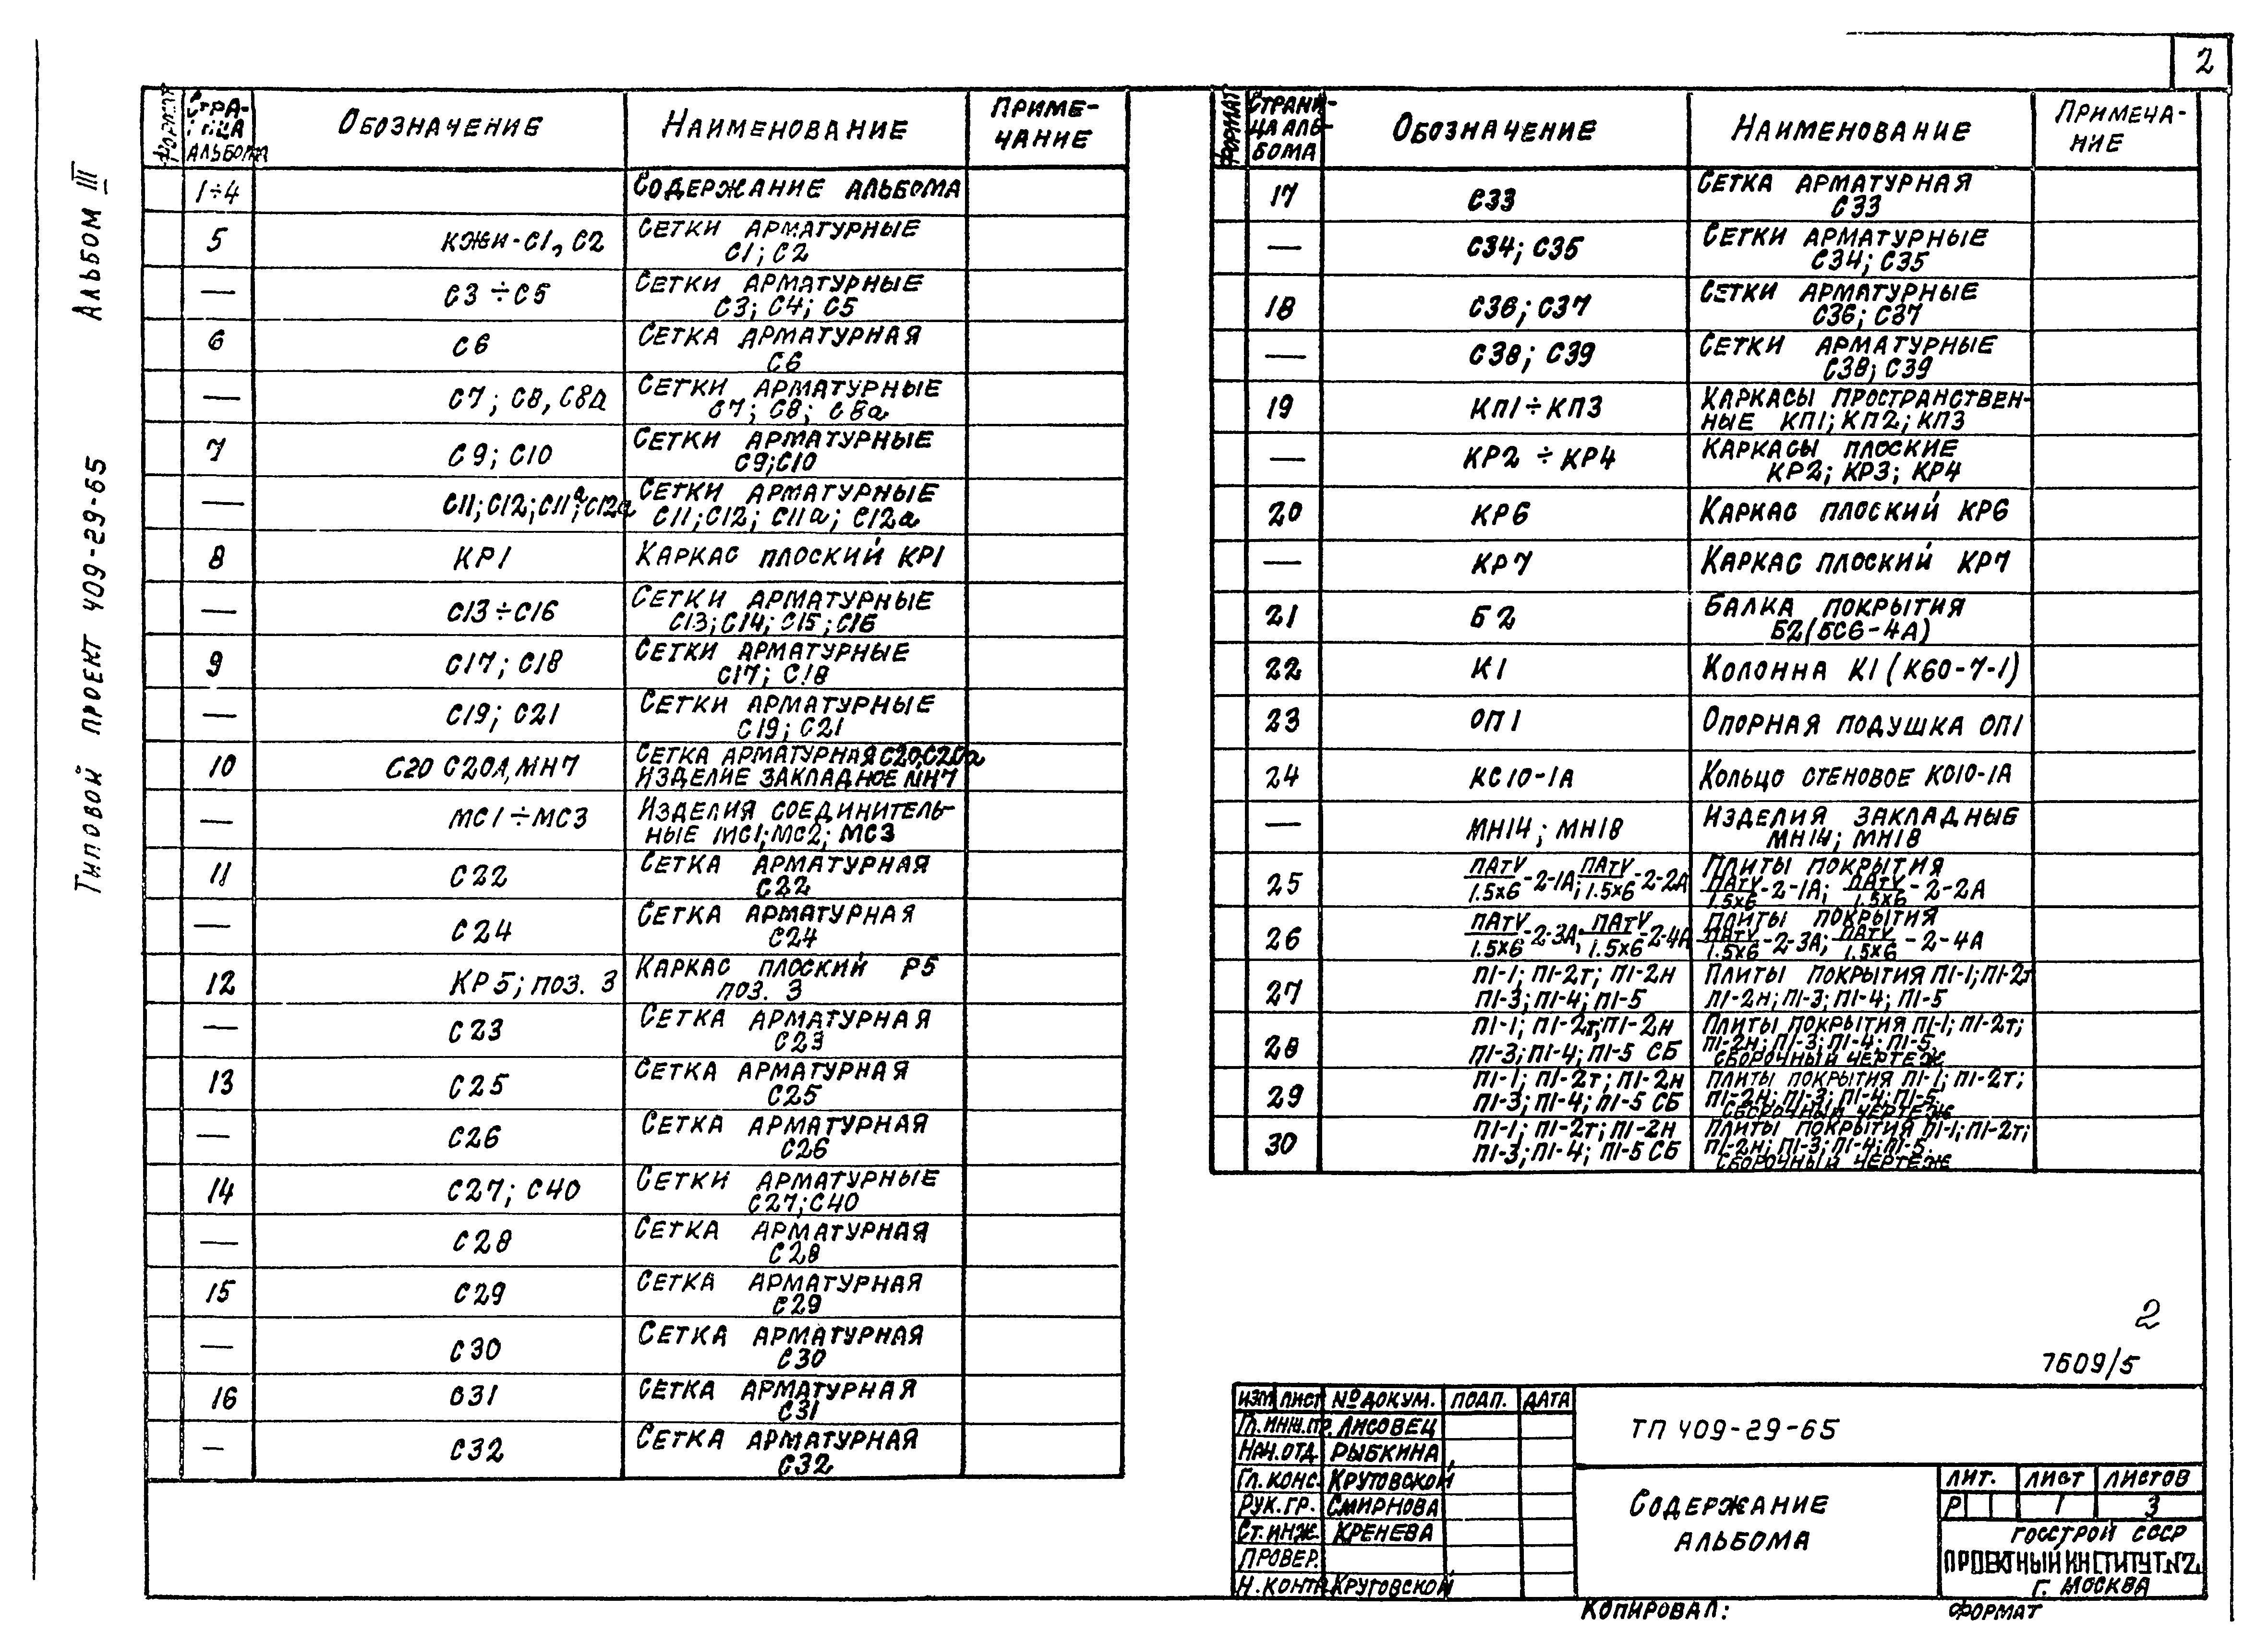 2
Типовой проект 409-29-65 Альбом III
Формат Страница альбома Обозначение Наименование Примечание
1÷4 Содержание альбома
5 КЖИ-С1, С2 Сетки арматурные
С1; С2
— С3÷С5 Сетки арматурные
С3; С4; С5
6 С6 Сетка арматурная
С6
— С7; С8, С8а Сетки арматурные
С7; С8; С8а
7 С9; С10 Сетки арматурные
С9; С10
— С11; С12; С11а; С12а Сетки арматурные
С11; С12; С11а; С12а
8 КР1 Каркас плоский КР1
— С13÷С16 Сетки арматурные
С13; С14; С15; С16
9 С17; С18 Сетки арматурные
С17; С18
— С19; С21 Сетки арматурные
С19; С21
10 С20 С20А, МН7 Сетка арматурная С20, С20а
изделие закладное МН7
— МС1÷МС3 Изделия соединитель-
ные МС1; МС2; МС3
11 С22 Сетка арматурная
С22
— С24 Сетка арматурная
С24
12 КР5; поз. 3 Каркас плоский Р5
поз. 3
— С23 Сетка арматурная
С23
13 С25 Сетка арматурная
С25
— С26 Сетка арматурная
С26
14 С27; С40 Сетки арматурные
С27; С40
— С28 Сетка арматурная
С28
15 С29 Сетка арматурная
С29
— С30 Сетка арматурная
С30
16 С31 Сетка арматурная
С31
— С32 Сетка арматурная
С32
Формат Страница альбома Обозначение Наименование Примечание
17 С33 Сетка арматурная
С33
— С34; С35 Сетки арматурные
С34; С35
18 С36; С37 Сетки арматурные
С36; С37
— С38; С39 Сетки арматурные
С38; С39
19 КП1÷КП3 Каркасы пространствен-
ные КП1; КП2; КП3
— КР2÷КР4 Каркасы плоские
КР2; КР3; КР4
20 КР6 Каркас плоский КР6
— КР7 Каркас плоский КР7
21 Б2 Балка покрытия
Б2(БС6-4А)
22 К1 Колонна К1 (К60-7-1)
23 ОП1 Опорная подушка ОП1
24 КС10-1А Кольцо стеновое КС10-1А
— МН14; МН18 Изделия закладные
МН14; МН18
25 ПАТV/1.5×6-2-1А; ПАТV/1.5×6-2-2А Плиты покрытия
ПАТV/1.5×6-2-1А; ПАТV/1.5×6-2-2А
26 ПАТV/1.5×6-2-3А; ПАТV/1.5×6-2-4А Плиты покрытия
ПАТV/1.5×6-2-3А; ПАТV/1.5×6-2-4А
27 П1-1; П1-2т; П1-2н Плиты покрытия П1-1; П1-2т
П1-3; П1-4; П1-5 П1-2н; П1-3; П1-4; П1-5
28 П1-1; П1-2т; П1-2н Плиты покрытия П1-1; П1-2т;
П1-3; П1-4; П1-5 СБ П1-2н; П1-3; П1-4; П1-5.
Сборочный чертеж
29 П1-1; П1-2т; П1-2н Плиты покрытия П1-1; П1-2т;
П1-3; П1-4; П1-5 СБ П1-2н; П1-3; П1-4; П1-5.
Сборочный чертеж
30 П1-1; П1-2т; П1-2н Плиты покрытия П1-1; П1-2т;
П1-3; П1-4; П1-5 СБ П1-2н; П1-3; П1-4; П1-5.
Сборочный чертеж
2
7609/5
Изм Лист № докум. Подп. Дата
Гл. инж. пр. Лисовец
Нач. отд. Рыбкина
Гл. конс. Крутовской
Рук. гр. Смирнова
Ст. инж. Кренева
Провер.
Н. контр. Крутовской
ТП 409-29-65
Содержание
альбома
Лит. Лист Листов
Р 1 3
Госстрой СССР
Проектный институт №2
г. Москва
Копировал: Формат